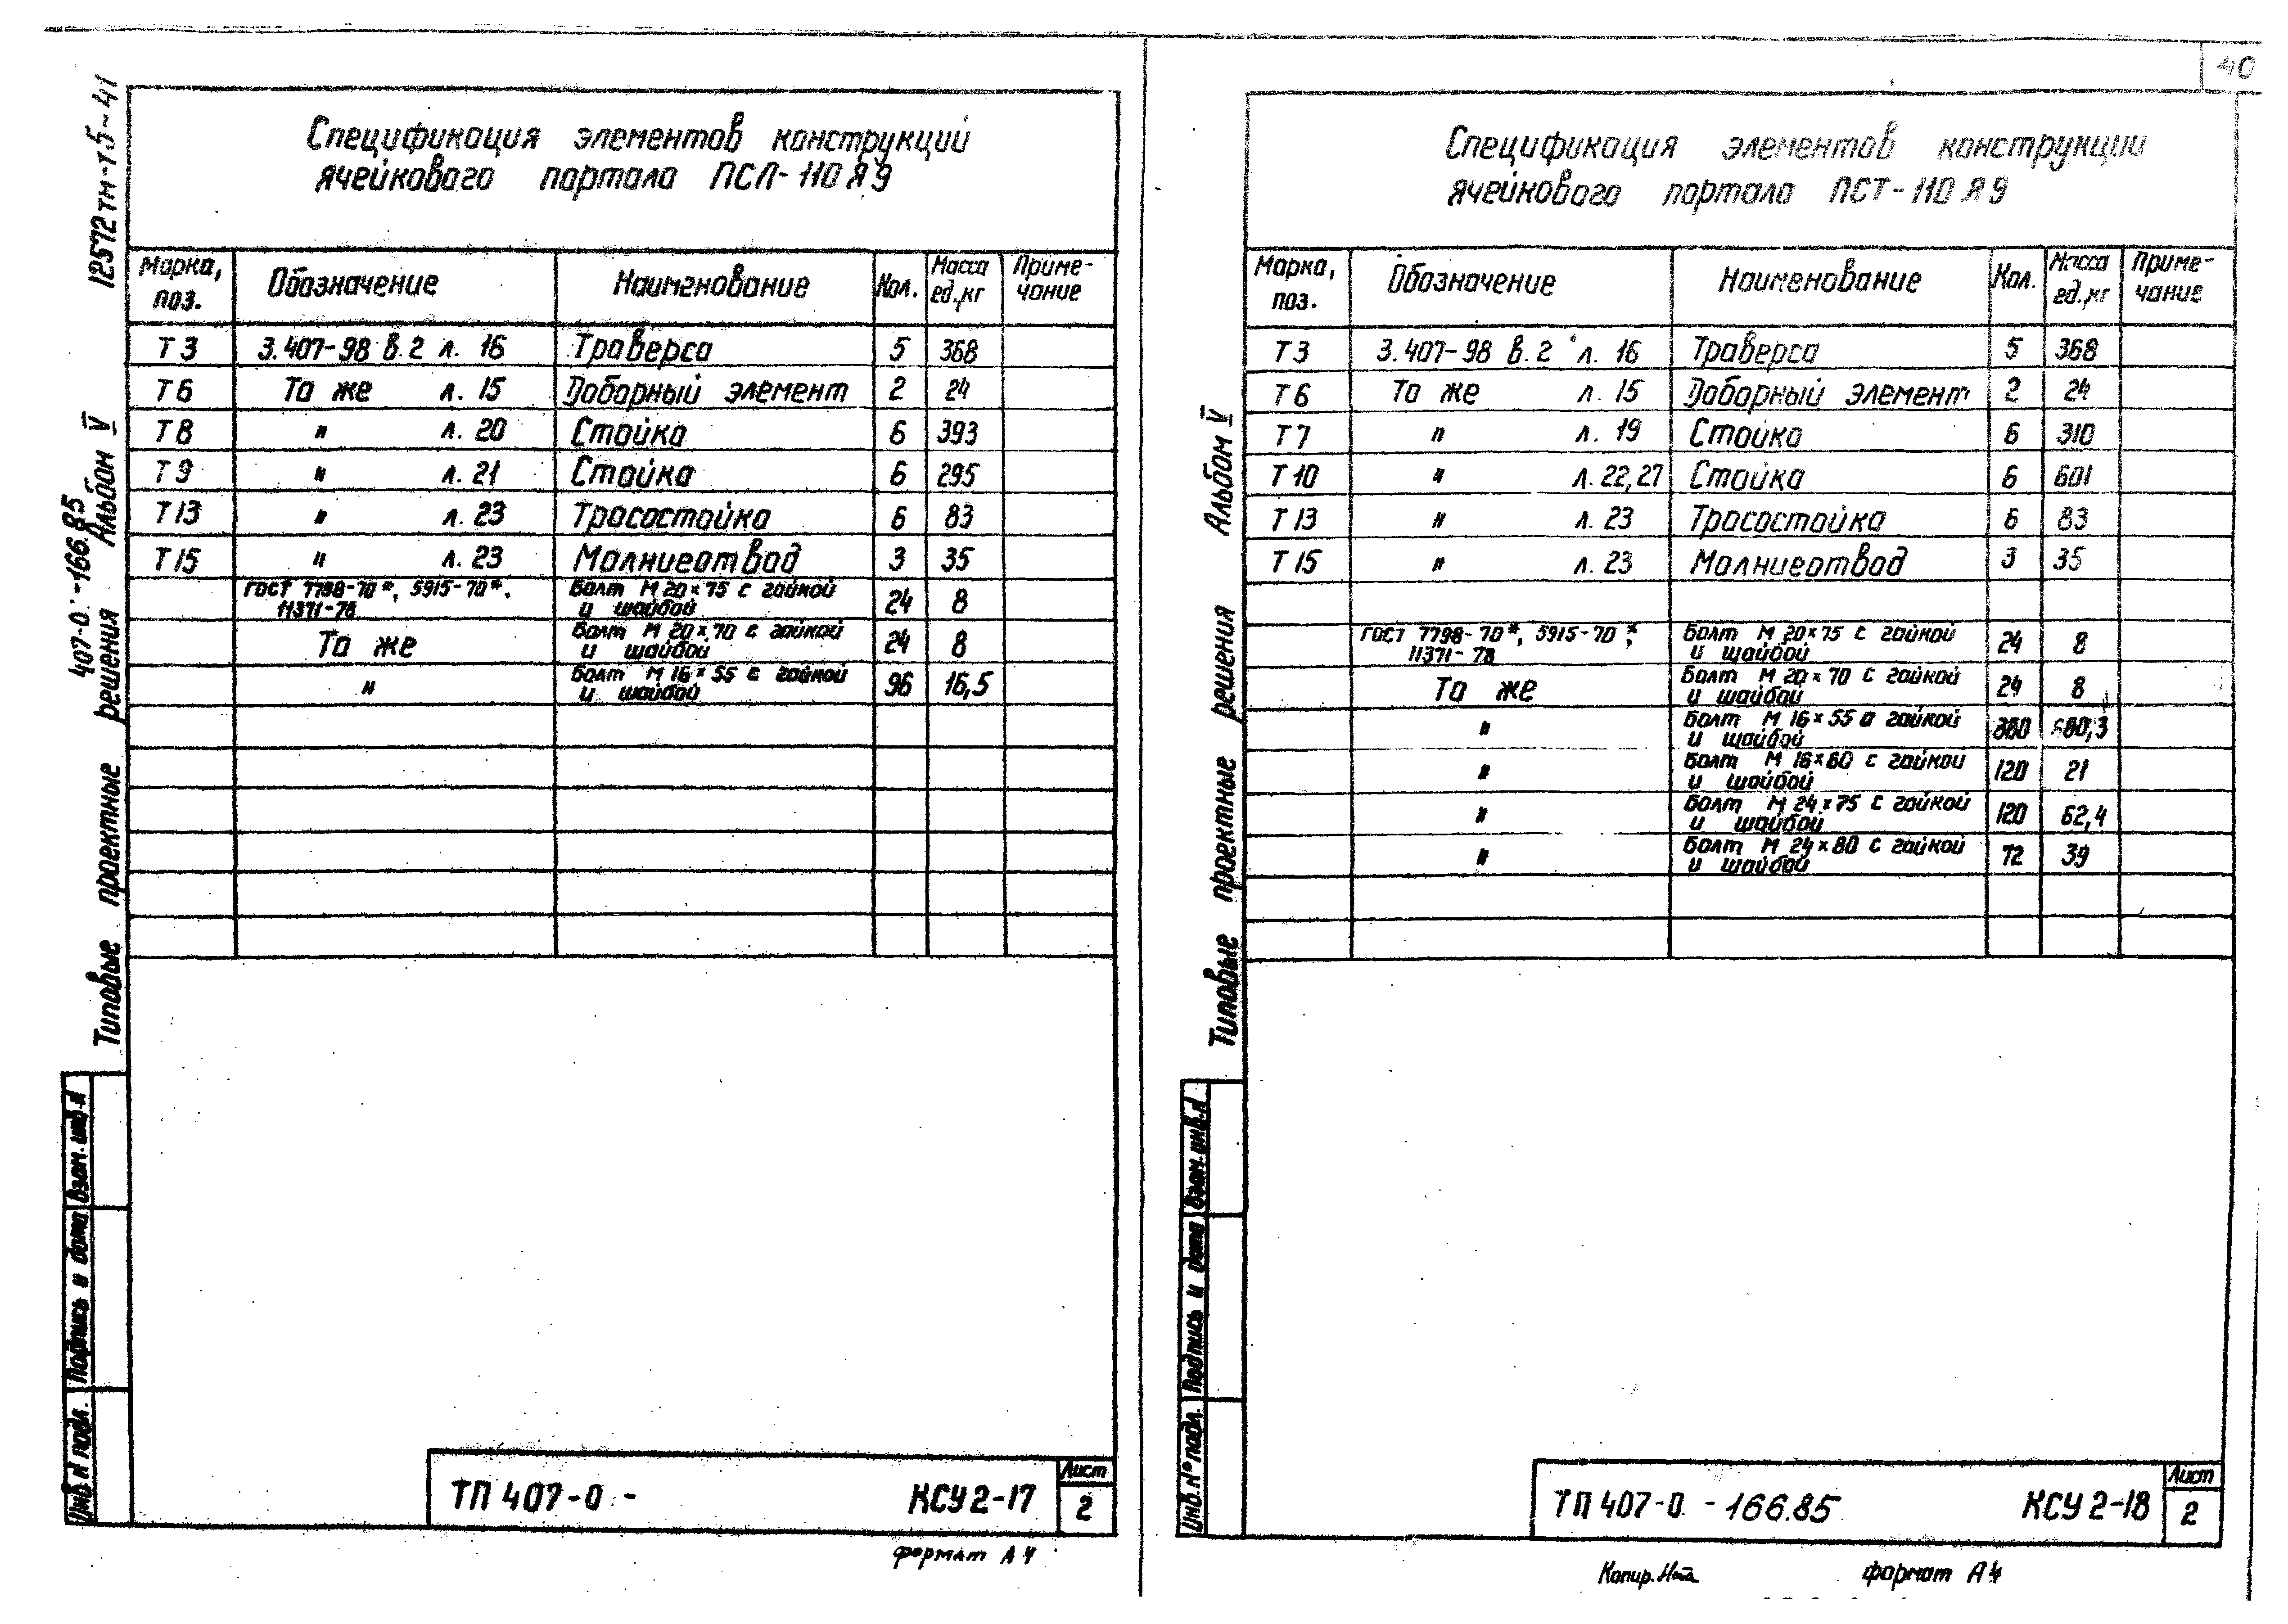 40
12572тм-т5-41
407-0-166.85
Типовые проектные решения Альбом V
Спецификация элементов конструкций
ячейкового портала ПСЛ-110Я9
Марка, поз. Обозначение Наименование Кол. Масса ед.,кг Приме-чание
Т3 3.407-98 в.2 л. 16 Траверса 5 368
Т6 То же л. 15 Доборный элемент 2 24
Т8 " л. 20 Стойка 6 393
Т9 " л. 21 Стойка 6 295
Т13 " л. 23 Тросостойка 6 83
Т15 " л. 23 Молниеотвод 3 35
ГОСТ 7798-70*, 5915-70*, Болт М 20×75 с гайкой
11371-78 и шайбой 24 8
То же Болт М 20×70 с гайкой
и шайбой 24 8
" Болт М 16×55 с гайкой
и шайбой 96 16,5
Инв. N подл. Подпись и дата Взам. инв. N
ТП 407-0 - КСУ2-17 Лист
2
формат А4
Типовые проектные решения Альбом V
Спецификация элементов конструкции
ячейкового портала ПСТ-110Я9
Марка, поз. Обозначение Наименование Кол. Масса ед.,кг Приме-чание
Т3 3.407-98 в.2 л. 16 Траверса 5 368
Т6 То же л. 15 Доборный элемент 2 24
Т7 " л. 19 Стойка 6 310
Т10 " л. 22,27 Стойка 6 601
Т13 " л. 23 Тросостойка 6 83
Т15 " л. 23 Молниеотвод 3 35
ГОСТ 7798-70*, 5915-70*, Болт М 20×75 с гайкой
11371-78 и шайбой 24 8
То же Болт М 20×70 с гайкой
и шайбой 24 8
" Болт М 16×55 с гайкой
и шайбой
" Болт М 16×60 с гайкой
и шайбой 120 21
" Болт М 24×75 с гайкой
и шайбой 120 62,4
" Болт М 24×80 с гайкой
и шайбой 72 39
Инв. N° подл. Подпись и дата Взам. инв. N
ТП 407-0 - 166.85 КСУ2-18 Лист
2
Копир. формат А4